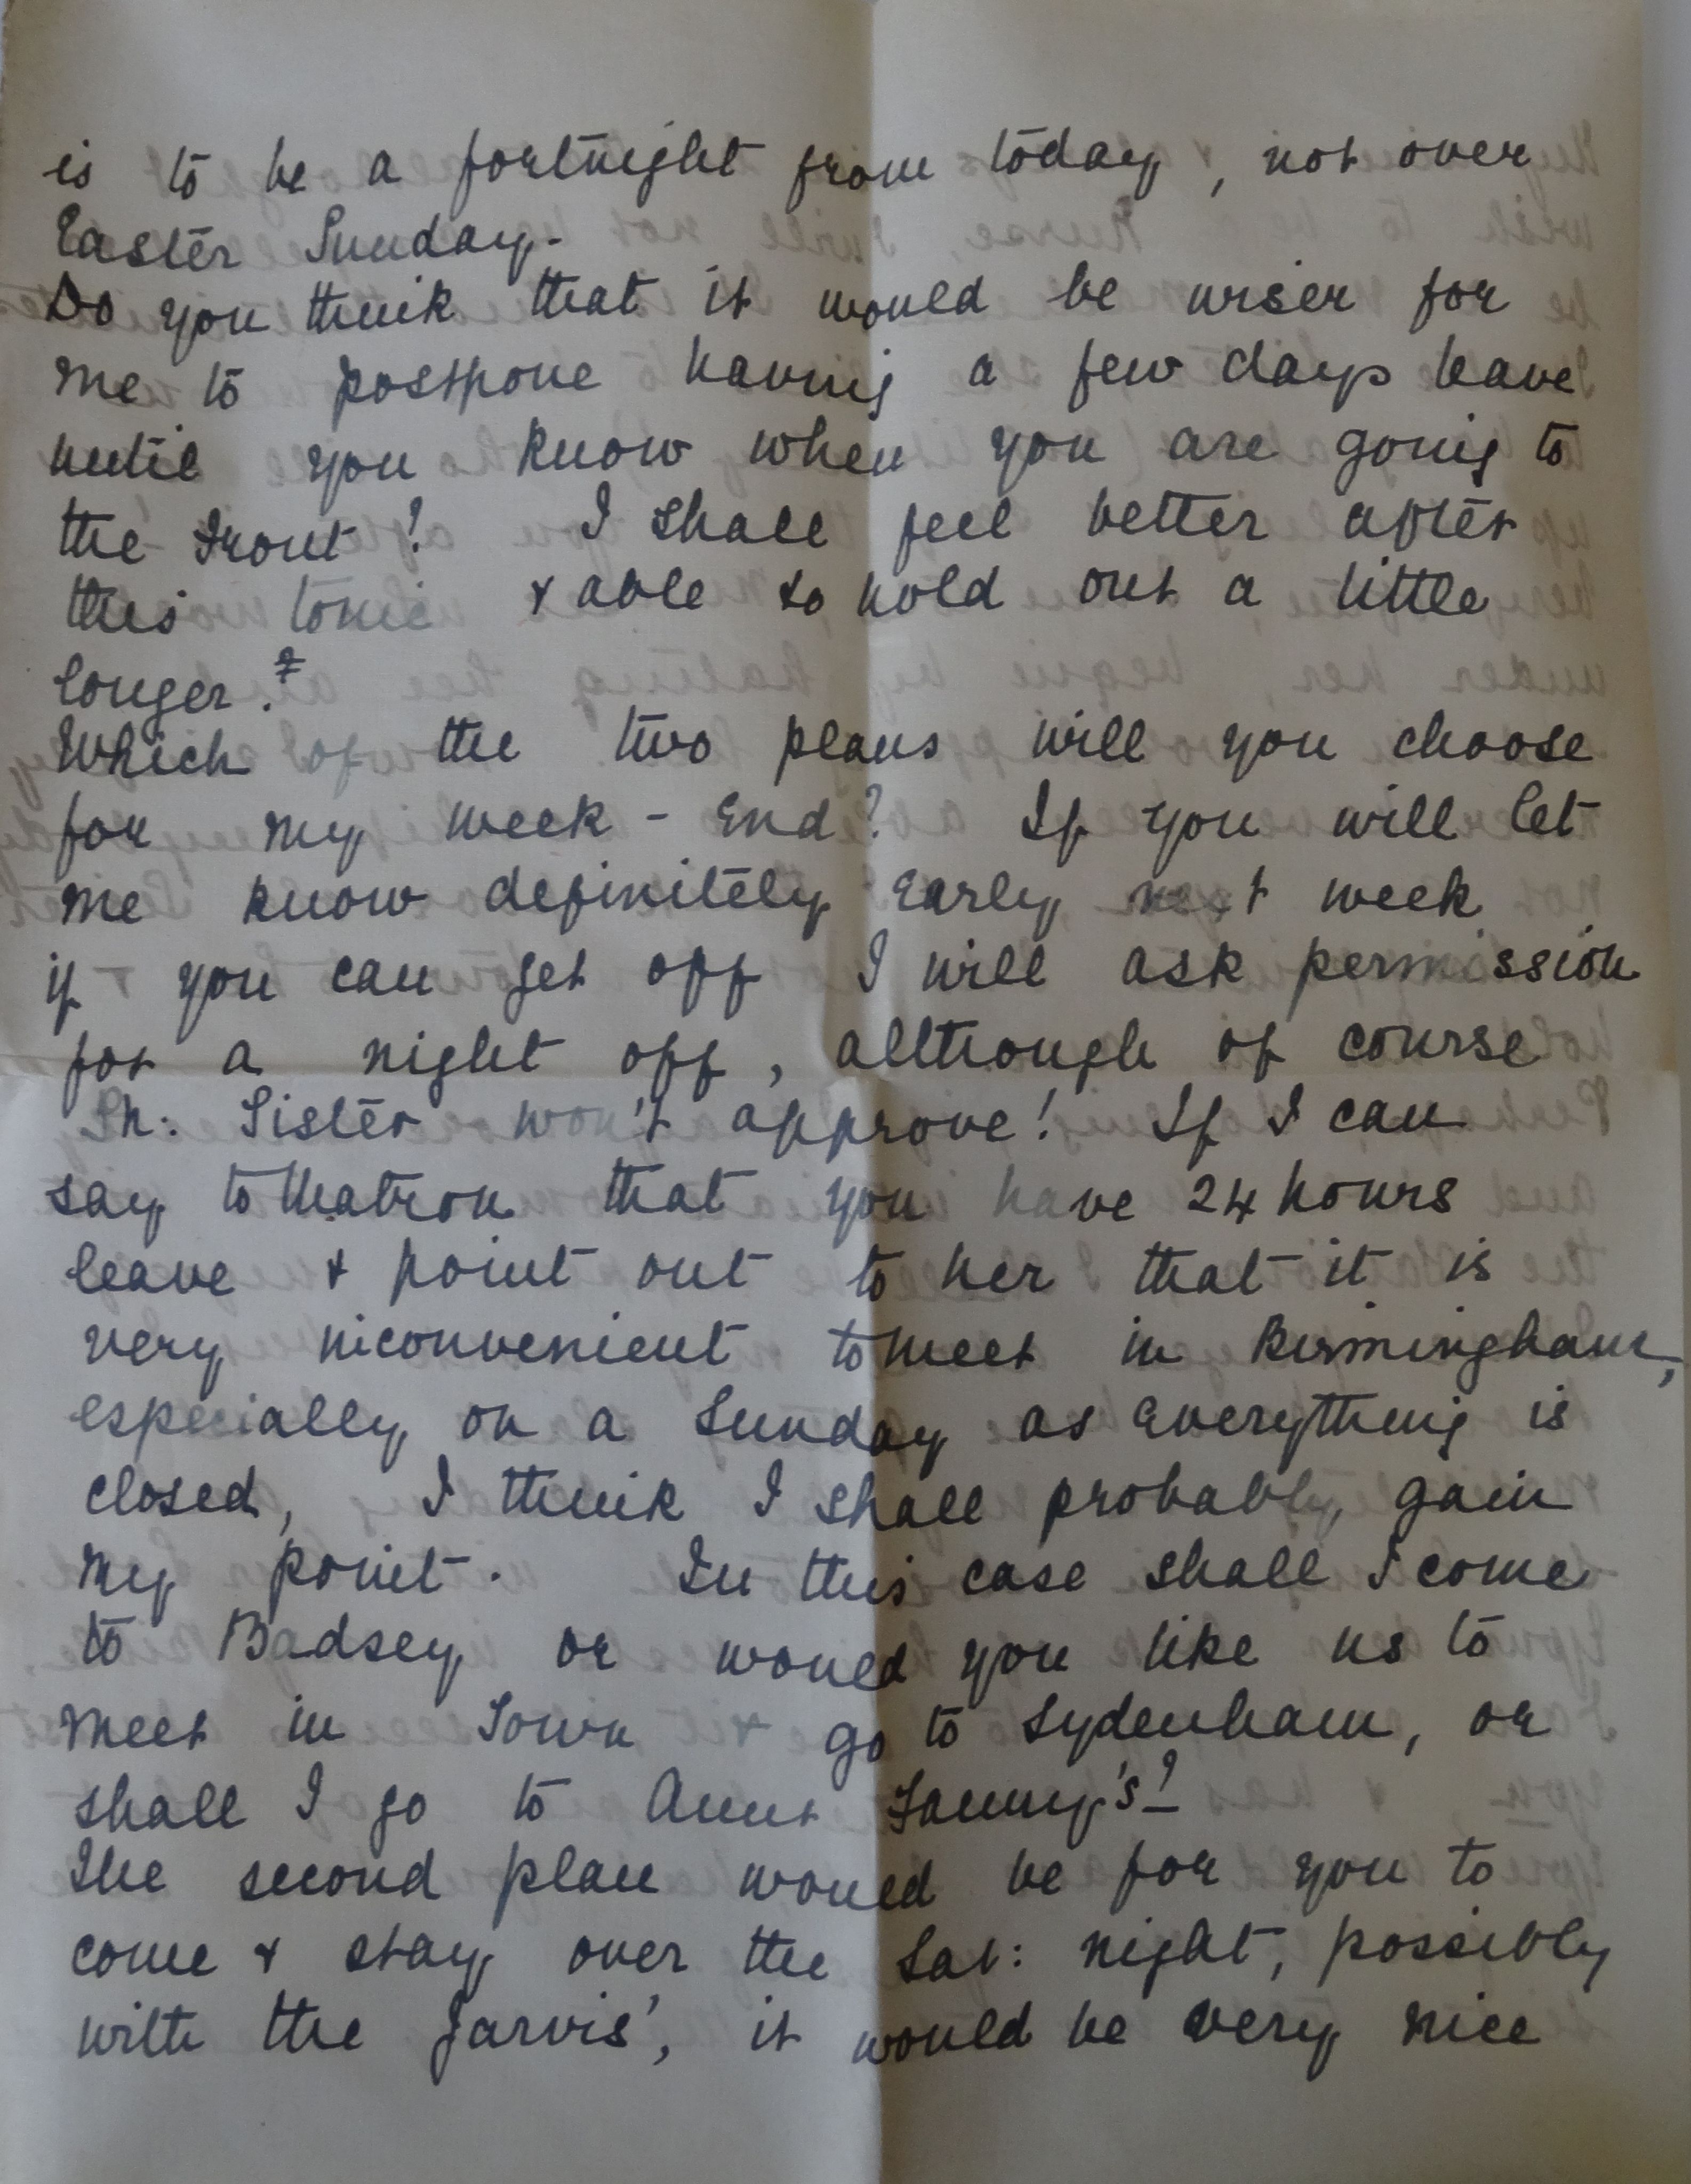 is to be a fortnight from today, not over
Easter Sunday.
Do you think that it would be wiser for
me to postpone having a few days leave
until you know when you are going to
the Front? I shall feel better after
this tonic & able to hold out a little
longer.
Which of the two plans will you choose
for my week-End? If you will let
me know definitely early next week
if you can get off I will ask permission
for a night off, although of course
Sister won't approve! If I can
say to Matron that you have 24 hours
leave & point out to her that it is
very inconvenient to meet in Birmingham,
especially on a Sunday as everything is
closed, I think I shall probably gain
my point. In this case shall I come
to Badsey or would you like us to
meet in Town & go to Sydenham, or
shall I go to Aunt Fanny's?
The second plan would be for you to
come & stay over the Sat: night, possibly
with the Jarvis', it would be very nice